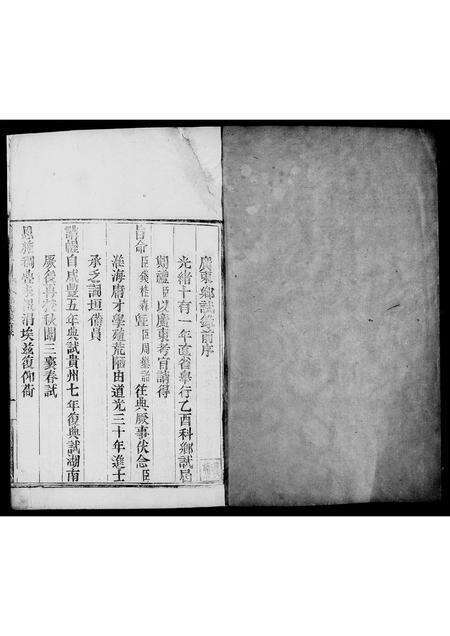 廣東鄉試錄前序
光緒十有一年直省舉行乙酉科鄉試屆
期禮臣以廣東考官請得
旨命臣錢桂森暨臣周往典厥事伏念臣
海庸才學蘊荒陋由道光三十年進士
承乏詞垣備員
講幄自咸豐五年典試貴州七年復典試湖南
厥後再秋闈三襄春試
恩涓埃茲復仰銜